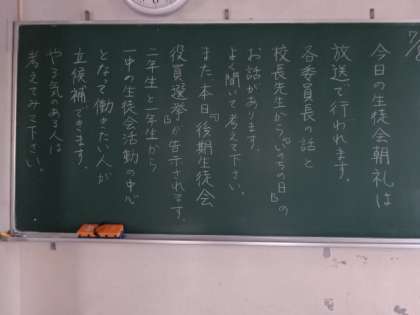 今日の生徒会朝礼は
放送で行われます。
各委員長の話と
校長先生から、「いのちの日」の
お話があります。
よく聞いて考えて下さい。
また、本日、『後期生徒会
役員選挙』が告示されます。
二年生と一年生から
一中の生徒会活動の中心
となって働きたい人が
立候補できます。
やる気のある人は
考えてみて下さい。